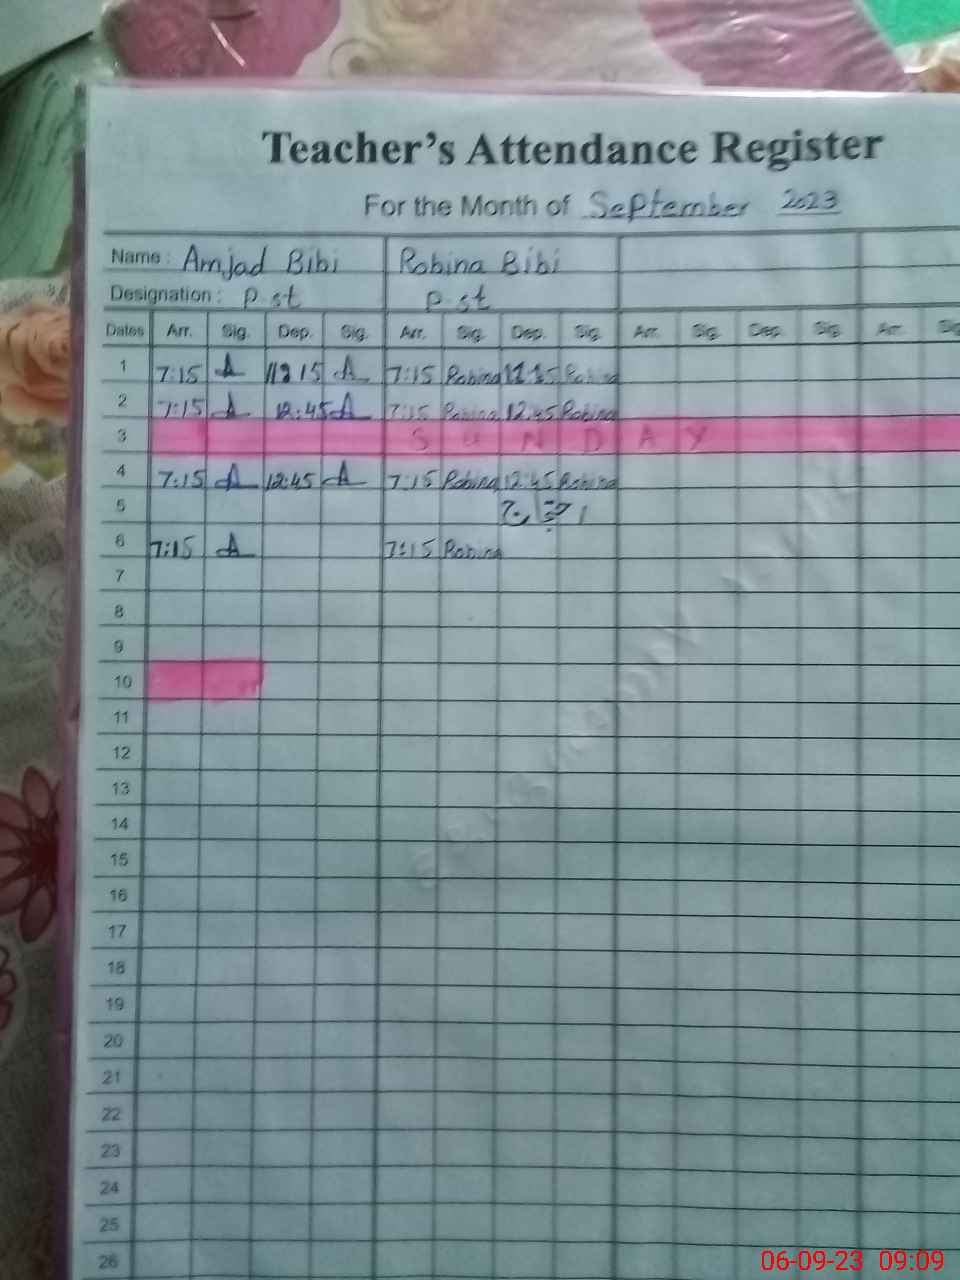 Teacher's Attendance Register
For the Month of September 2023
Name : Amjad Bibi Robina Bibi
Designation : P.st P.st
Dates Arr. Sig. Dep. Sig. Arr. Sig. Dep. Sig. Arr. Sig. Dep. Sig. Arr. Sig.
1 7:15 A 15 A 7:15 Robina Robina
2 7:15 A 12:45 A 7:15 Robina 12:45 Robina
3 SUNDAY
4 7:15 A 12:45 A 7:15 Robina 12:45 Robina
5
6 7:15 A 7:15 Robina
7
8
9
10
11
12
13
14
15
16
17
18
19
20
21
22
23
24
25
26
06-09-23 09:09